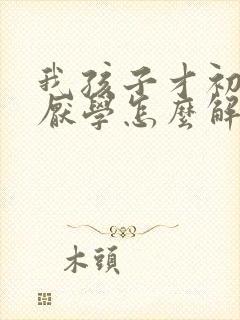 我孩子才初
厭學怎麼解
木頭